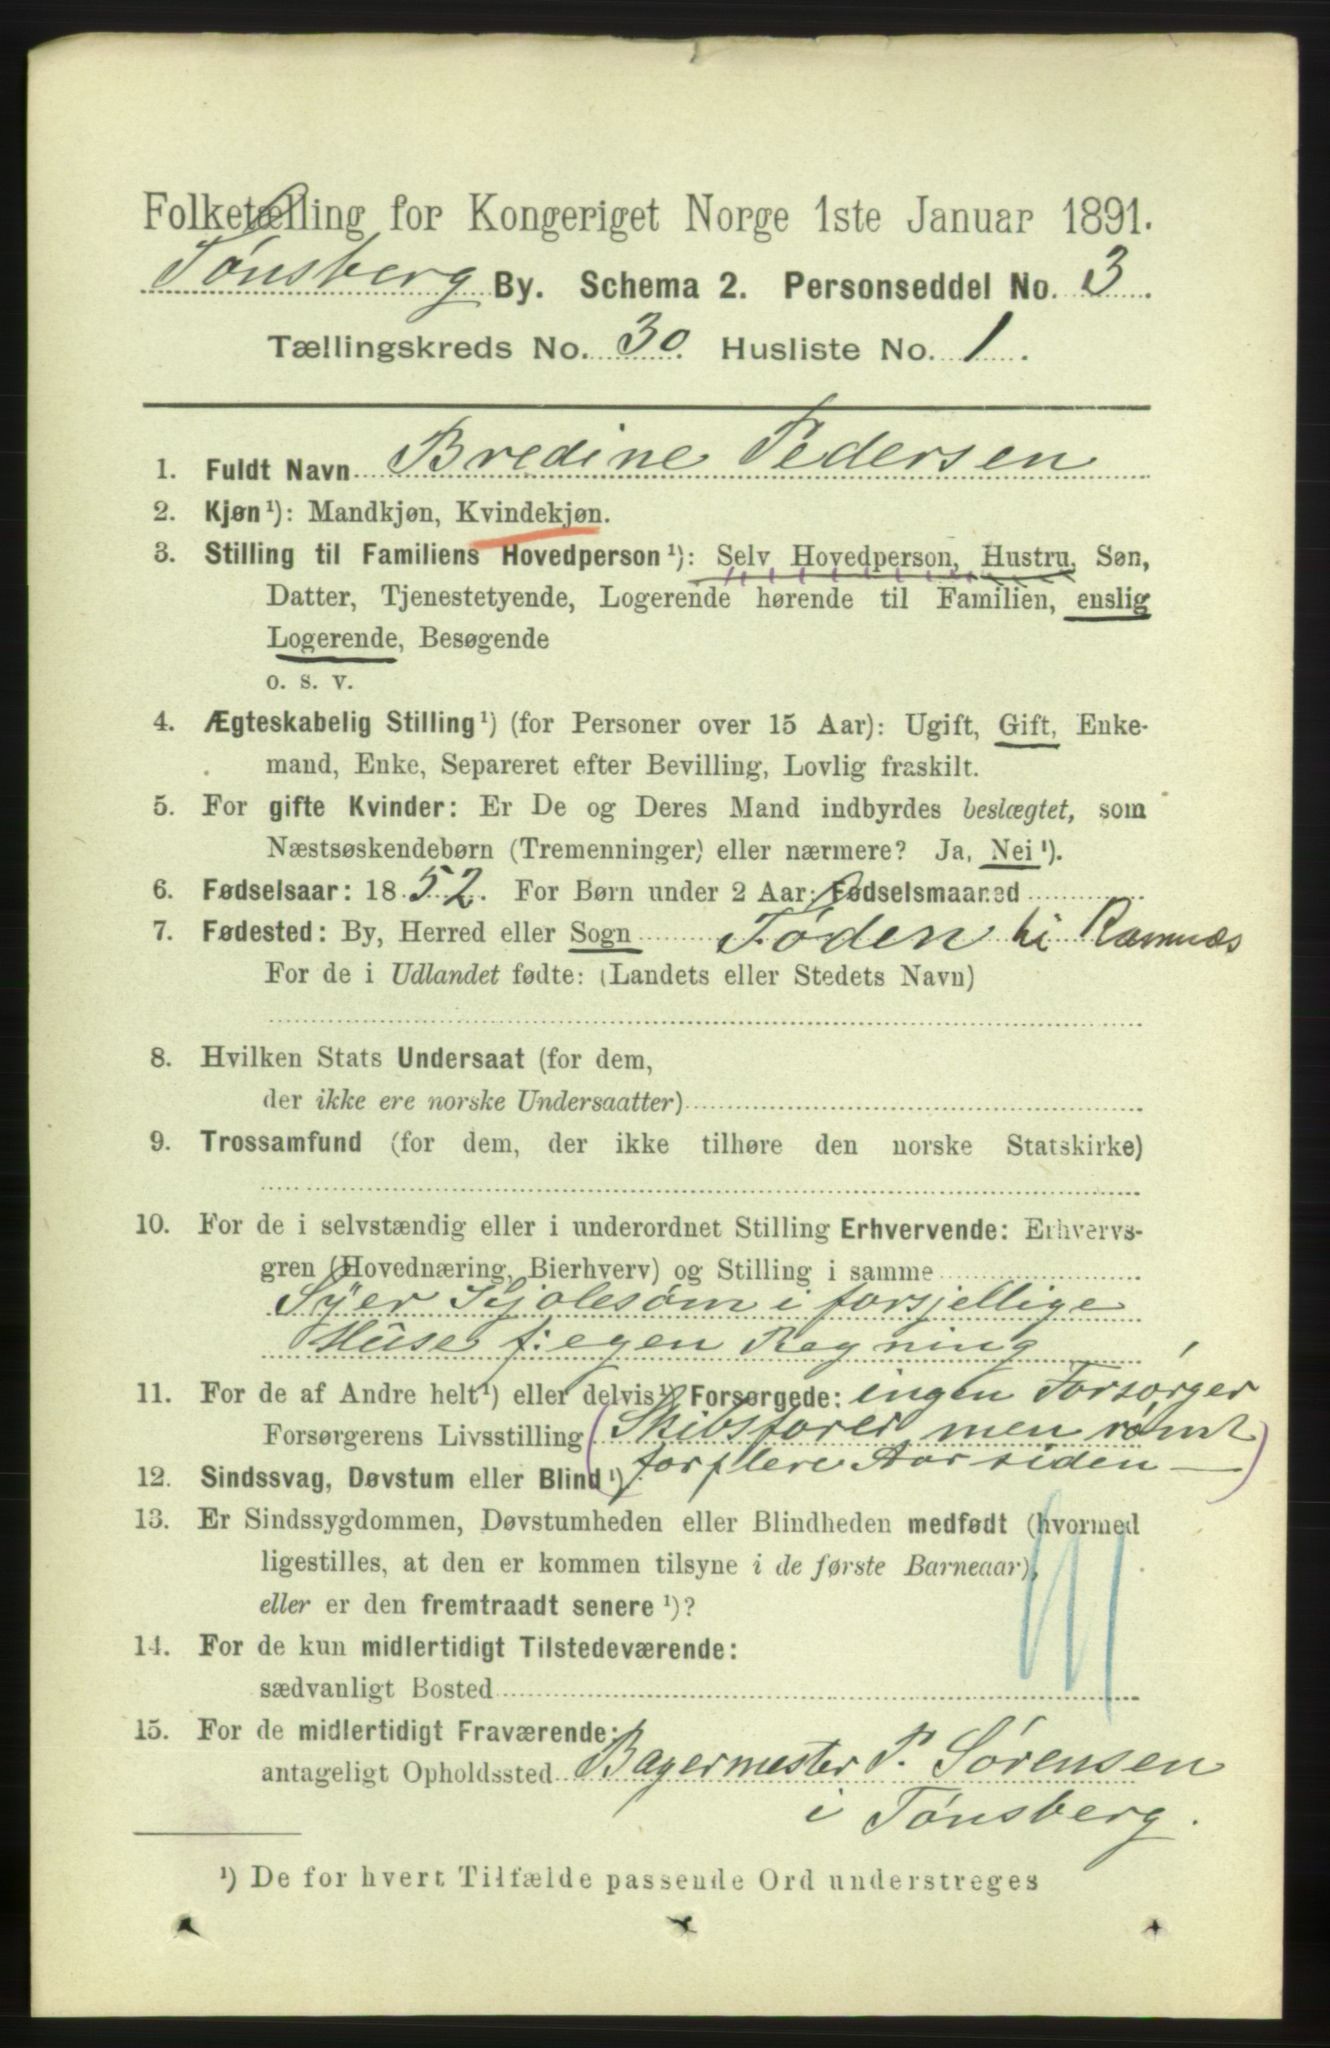 Folketælling for Kongeriget Norge 1ste Januar 1891.
Tønsberg By. Schema 2. Personseddel No. 3.
Tællingskreds No. 30. Husliste No. 1.
1. Fuldt Navn Bredine Pedersen
2. Kjøn¹): Mandkjøn, Kvindekjøn.
3. Stilling til Familiens Hovedperson¹): Selv Hovedperson, Hustru, Søn,
Datter, Tjenestetyende, Logerende hørende til Familien, enslig
Logerende, Besøgende
o. s. v.
4. Ægteskabelig Stilling¹) (for Personer over 15 Aar): Ugift, Gift, Enke-
mand, Enke, Separeret efter Bevilling, Lovlig fraskilt.
5. For gifte Kvinder: Er De og Deres Mand indbyrdes beslægtet, som
Næstsøskendebørn (Tremenninger) eller nærmere? Ja, Nei¹).
6. Fødselsaar: 1852. For Børn under 2 Aar: Fødselsmaaned
7. Fødested: By, Herred eller Sogn Føden i Ramnæs
For de i Udlandet fødte: (Landets eller Stedets Navn)
8. Hvilken Stats Undersaat (for dem,
der ikke ere norske Undersaatter)
9. Trossamfund (for dem, der ikke tilhøre den norske Statskirke)
10. For de i selvstændig eller i underordnet Stilling Erhvervende: Erhvervs-
gren (Hovednæring, Bierhverv) og Stilling i samme
Syer Kjolesøm i forsjellige
Huse f: egen Regning
11. For de af Andre helt¹) eller delvis¹) Forsørgede: ingen Forsørger
Forsørgerens Livsstilling (Skibsfører men rømt
12. Sindssvag, Døvstum eller Blind¹) for flere Aar siden —)
13. Er Sindssygdommen, Døvstumheden eller Blindheden medfødt (hvormed
ligestilles, at den er kommen tilsyne i de første Barneaar),
eller er den fremtraadt senere¹)?
14. For de kun midlertidigt Tilstedeværende:
sædvanligt Bosted
15. For de midlertidigt Fraværende:
antageligt Opholdssted Bagermester P. Sørensen
i Tønsberg.
¹) De for hvert Tilfælde passende Ord understreges